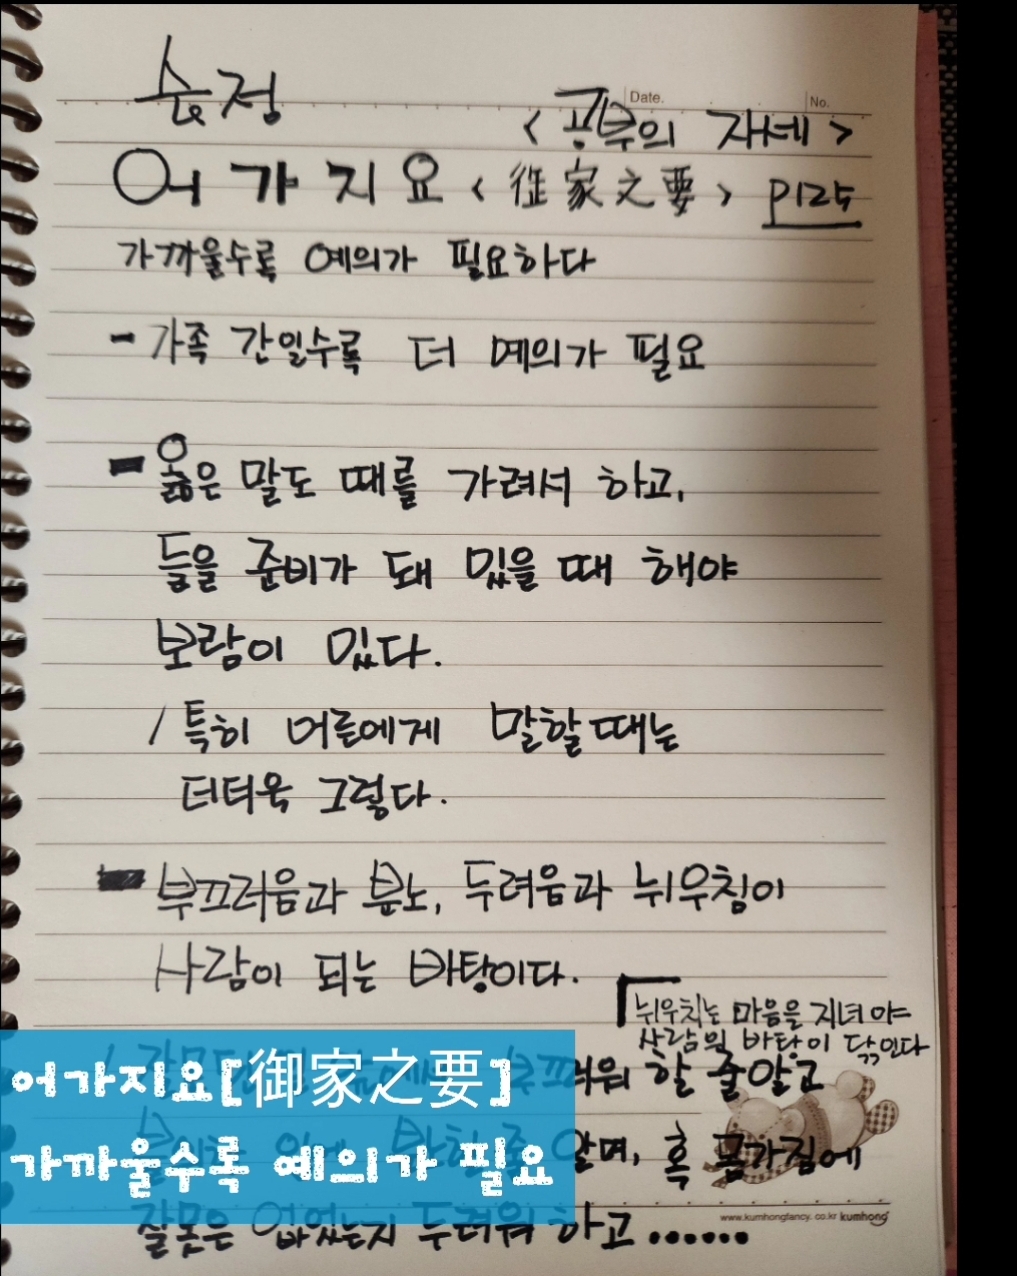 송정
Date.
No.
<공부의 자세>
어가지요 <御家之要> P125
가까울수록 예의가 필요하다
- 가족 간일수록 더 예의가 필요
- 옳은 말도 때를 가려서 하고,
들을 준비가 돼 있을 때 해야
보람이 있다.
/ 특히 어른에게 말할 때는
더더욱 그렇다.
- 부끄러움과 분노, 두려움과 뉘우침이
사람이 되는 바탕이다.
뉘우치는 마음을 지녀야
사람의 바탕이 닦인다
할 줄 알고
알며, 혹 몸가짐에
잘못은 없었는지 두려워 하고......
어가지요[御家之要]
가까울수록 예의가 필요
www.kumhongfancy.co.kr kumhong